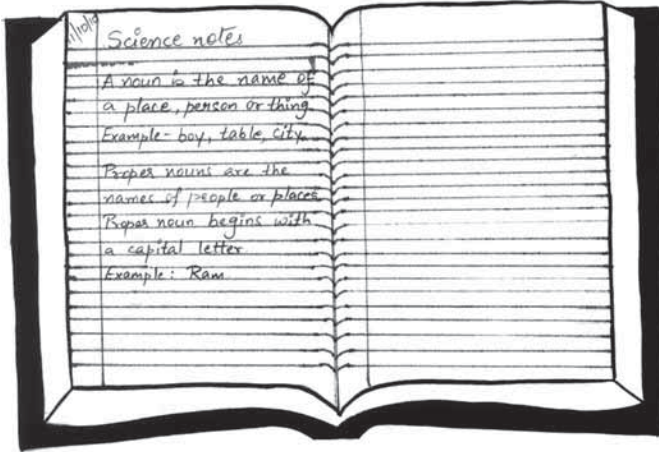 Science notes
A noun is the name of
a place, person or thing.
Example - boy, table, city.
Proper nouns are the
names of people or places
Proper noun begins with
a capital letter.
Example: Ram